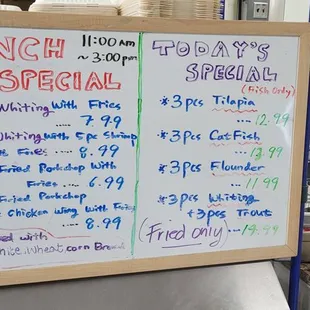 NCH
11:00 am
~ 3:00 pm
SPECIAL
Whiting With Fries
.... 7.99
Whiting With 5 pc Shrimp
Fries .... 8.99
Fried Porkchop With
Fries .... 6.99
Fried Porkchop
Chicken Wing With Fries
.... 8.99
with
Wheat, corn Bread
TODAY'S
SPECIAL
(Fish Only)
*3 pcs Tilapia
.... 12.99
*3 pcs CatFish
.... 13.99
*3 pcs Flounder
.... 11.99
*3 pcs Whiting
+3 pcs Trout
(Fried only) .... 14.99